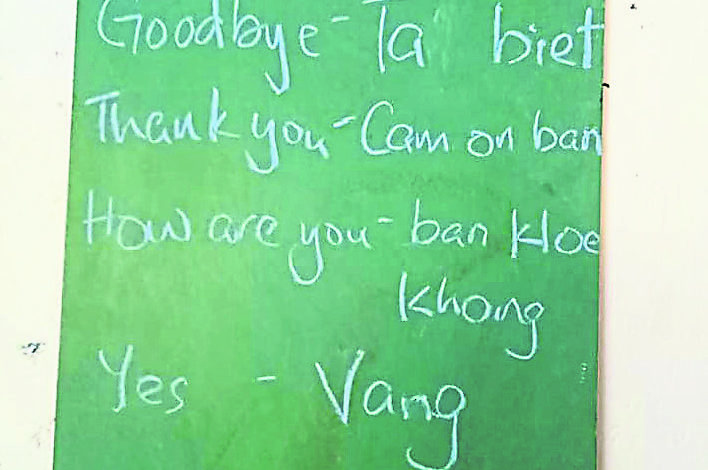 Goodbye - Ta biet
Thank you - Cam on ban
How are you - ban kloe
khong
Yes - Vang